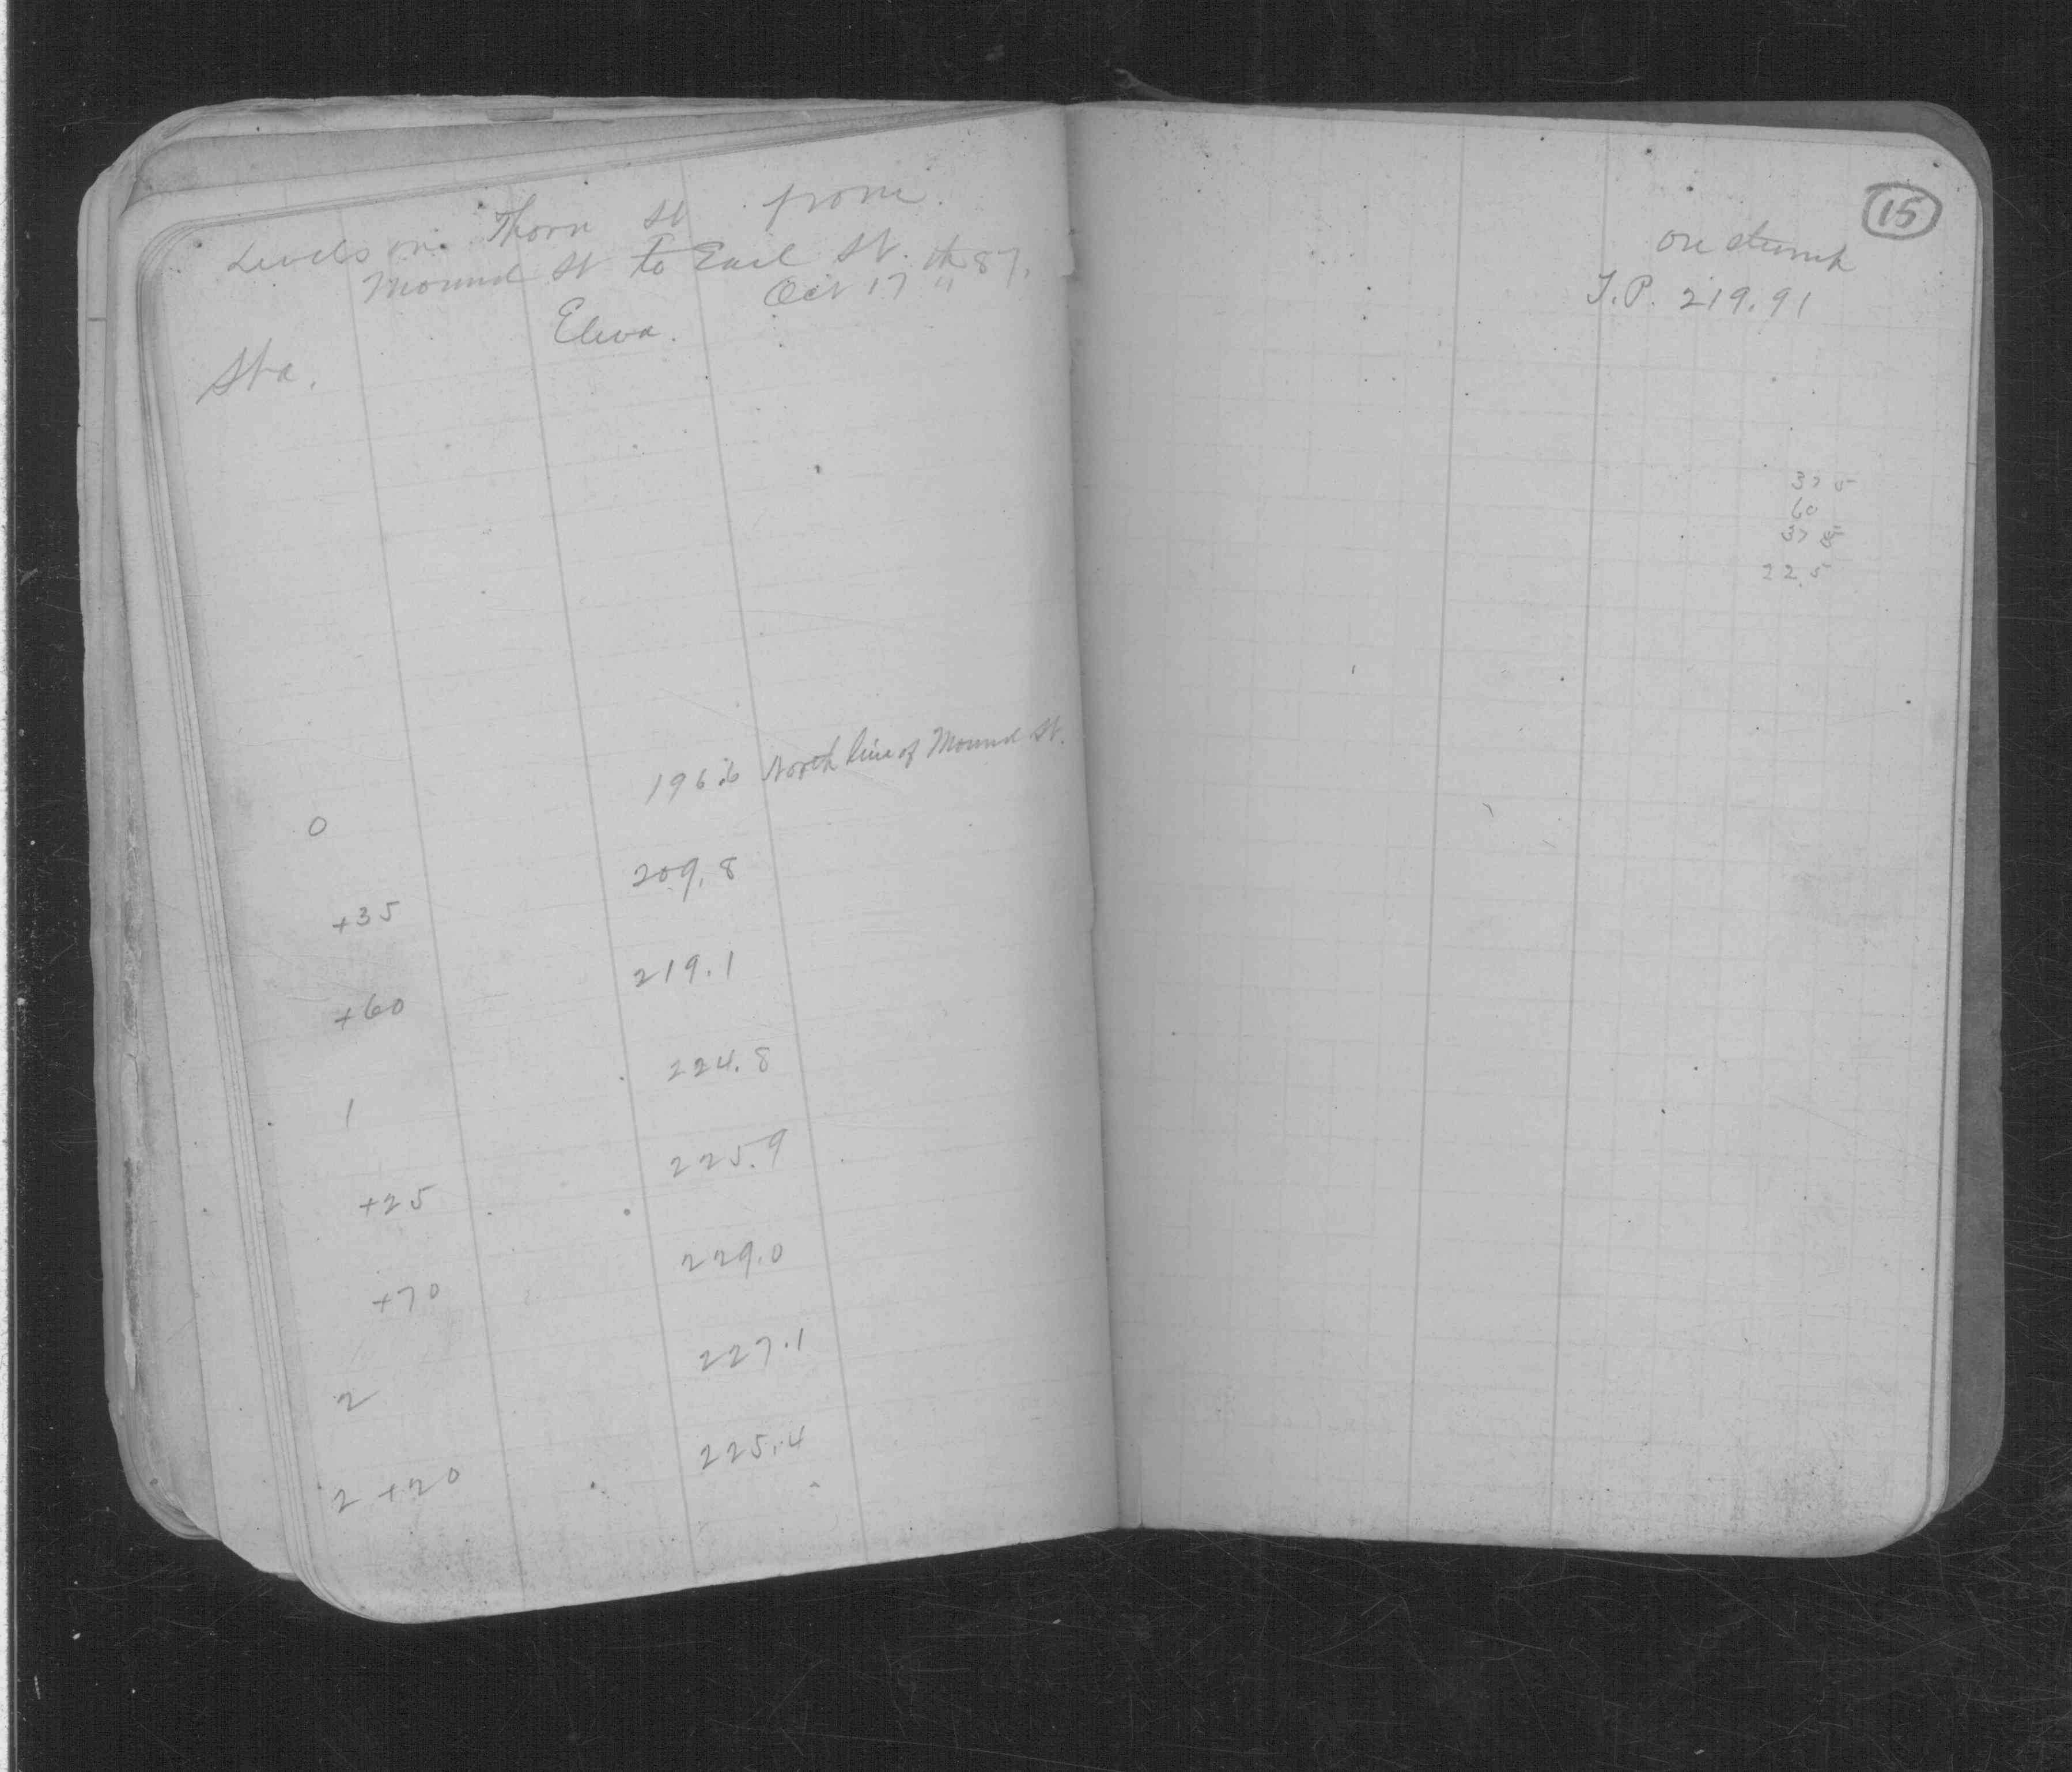 Levels on Thorn St from
Mound St to Earl St.
Oct 17th 87.
Sta. Eleva.
0 196.6 North line of Mound St.
+35 209.8
+60 219.1
1 224.8
+25 225.9
+70 229.0
2 227.1
2 +20 225.4
15
on stump
T.P. 219.91
37 5
60
37 5
22.5